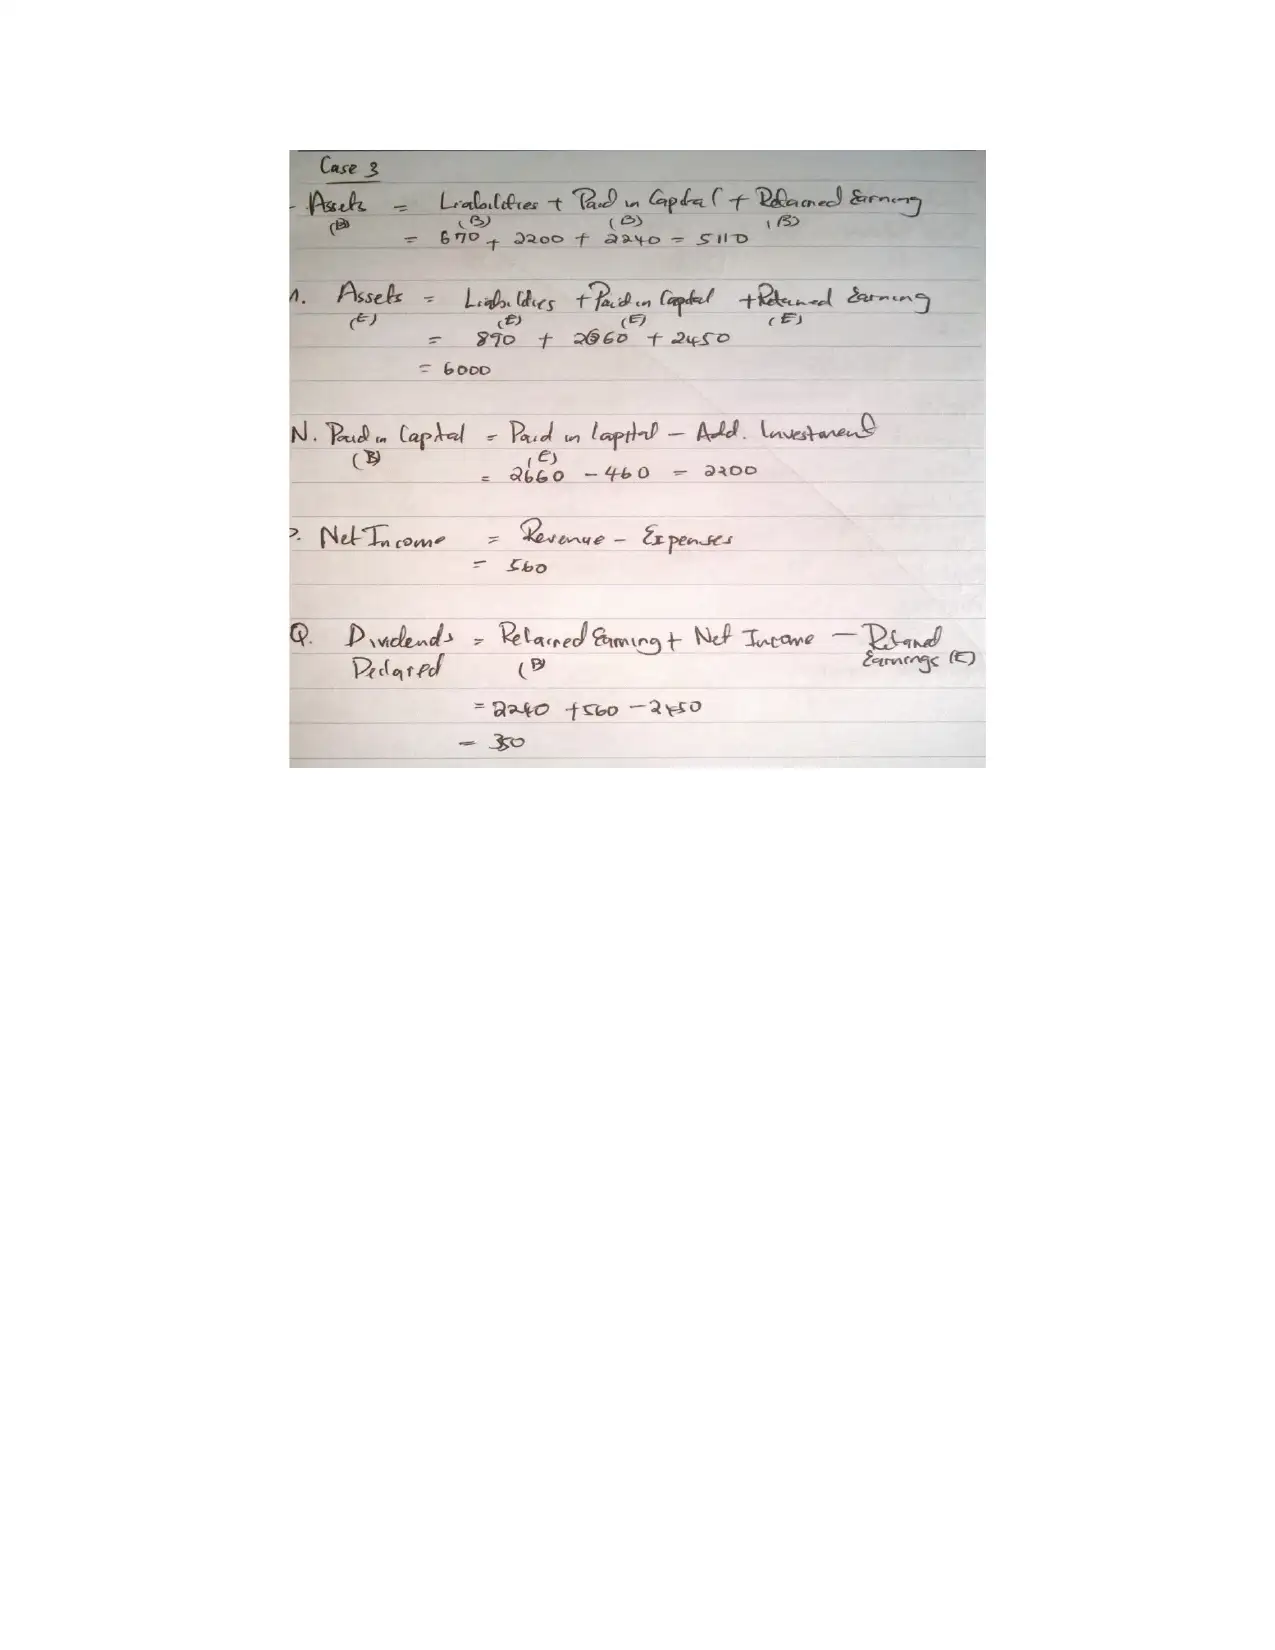 Case 3
- Assets = Liabilities + Paid in Capital + Retained Earning
(B) (B) (B) (B)
= 670 + 2200 + 2240 = 5110
Assets = Liabilities + Paid in Capital + Retained Earning
(E) (E) (E) (E)
= 890 + 2660 + 2450
= 6000
N. Paid in Capital = Paid in Capital - Add. Investment
(B) (E)
= 2660 - 460 = 2200
Net Income = Revenue - Expenses
= 560
Q. Dividends = Retained Earning + Net Income - Retained
Declared (B) Earnings (E)
= 2240 + 560 - 2450
= 350